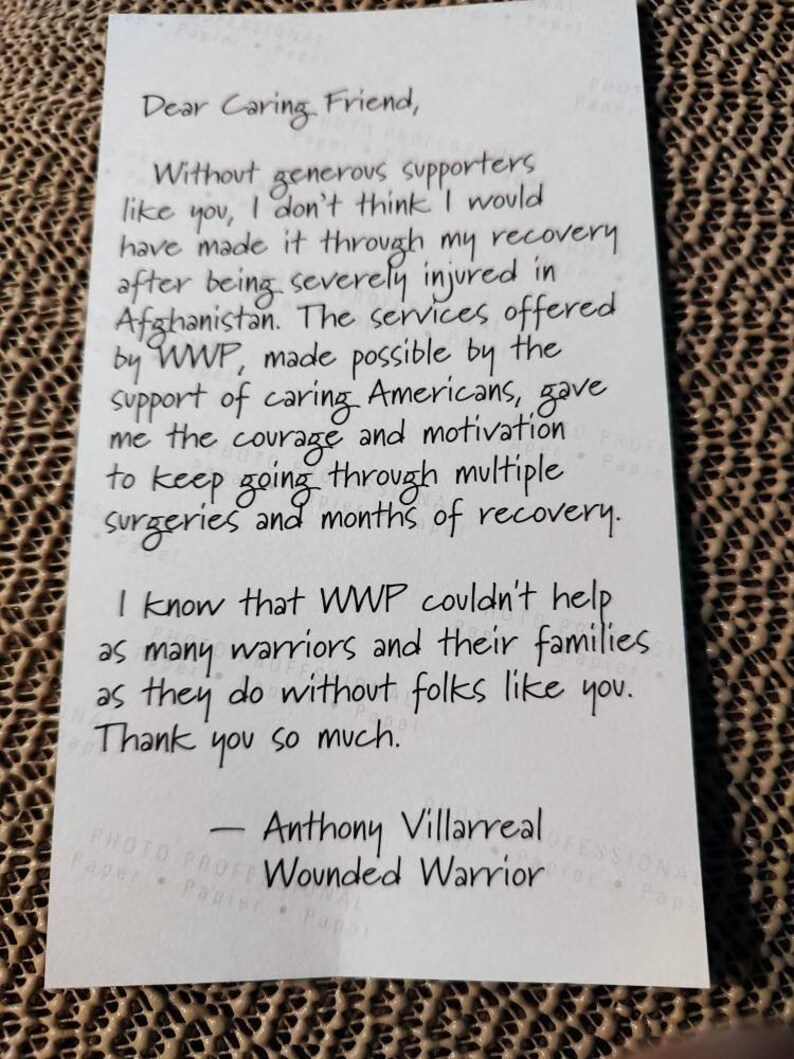 Dear Caring Friend,
Without generous supporters
like you, I don't think I would
have made it through my recovery
after being severely injured in
Afghanistan. The services offered
by WWP, made possible by the
support of caring Americans, gave
me the courage and motivation
to keep going through multiple
surgeries and months of recovery.
I know that WWP couldn't help
as many warriors and their families
as they do without folks like you.
Thank you so much.
— Anthony Villarreal
Wounded Warrior
PHOTO PROFESSIONAL
Paper • Papier • Papel